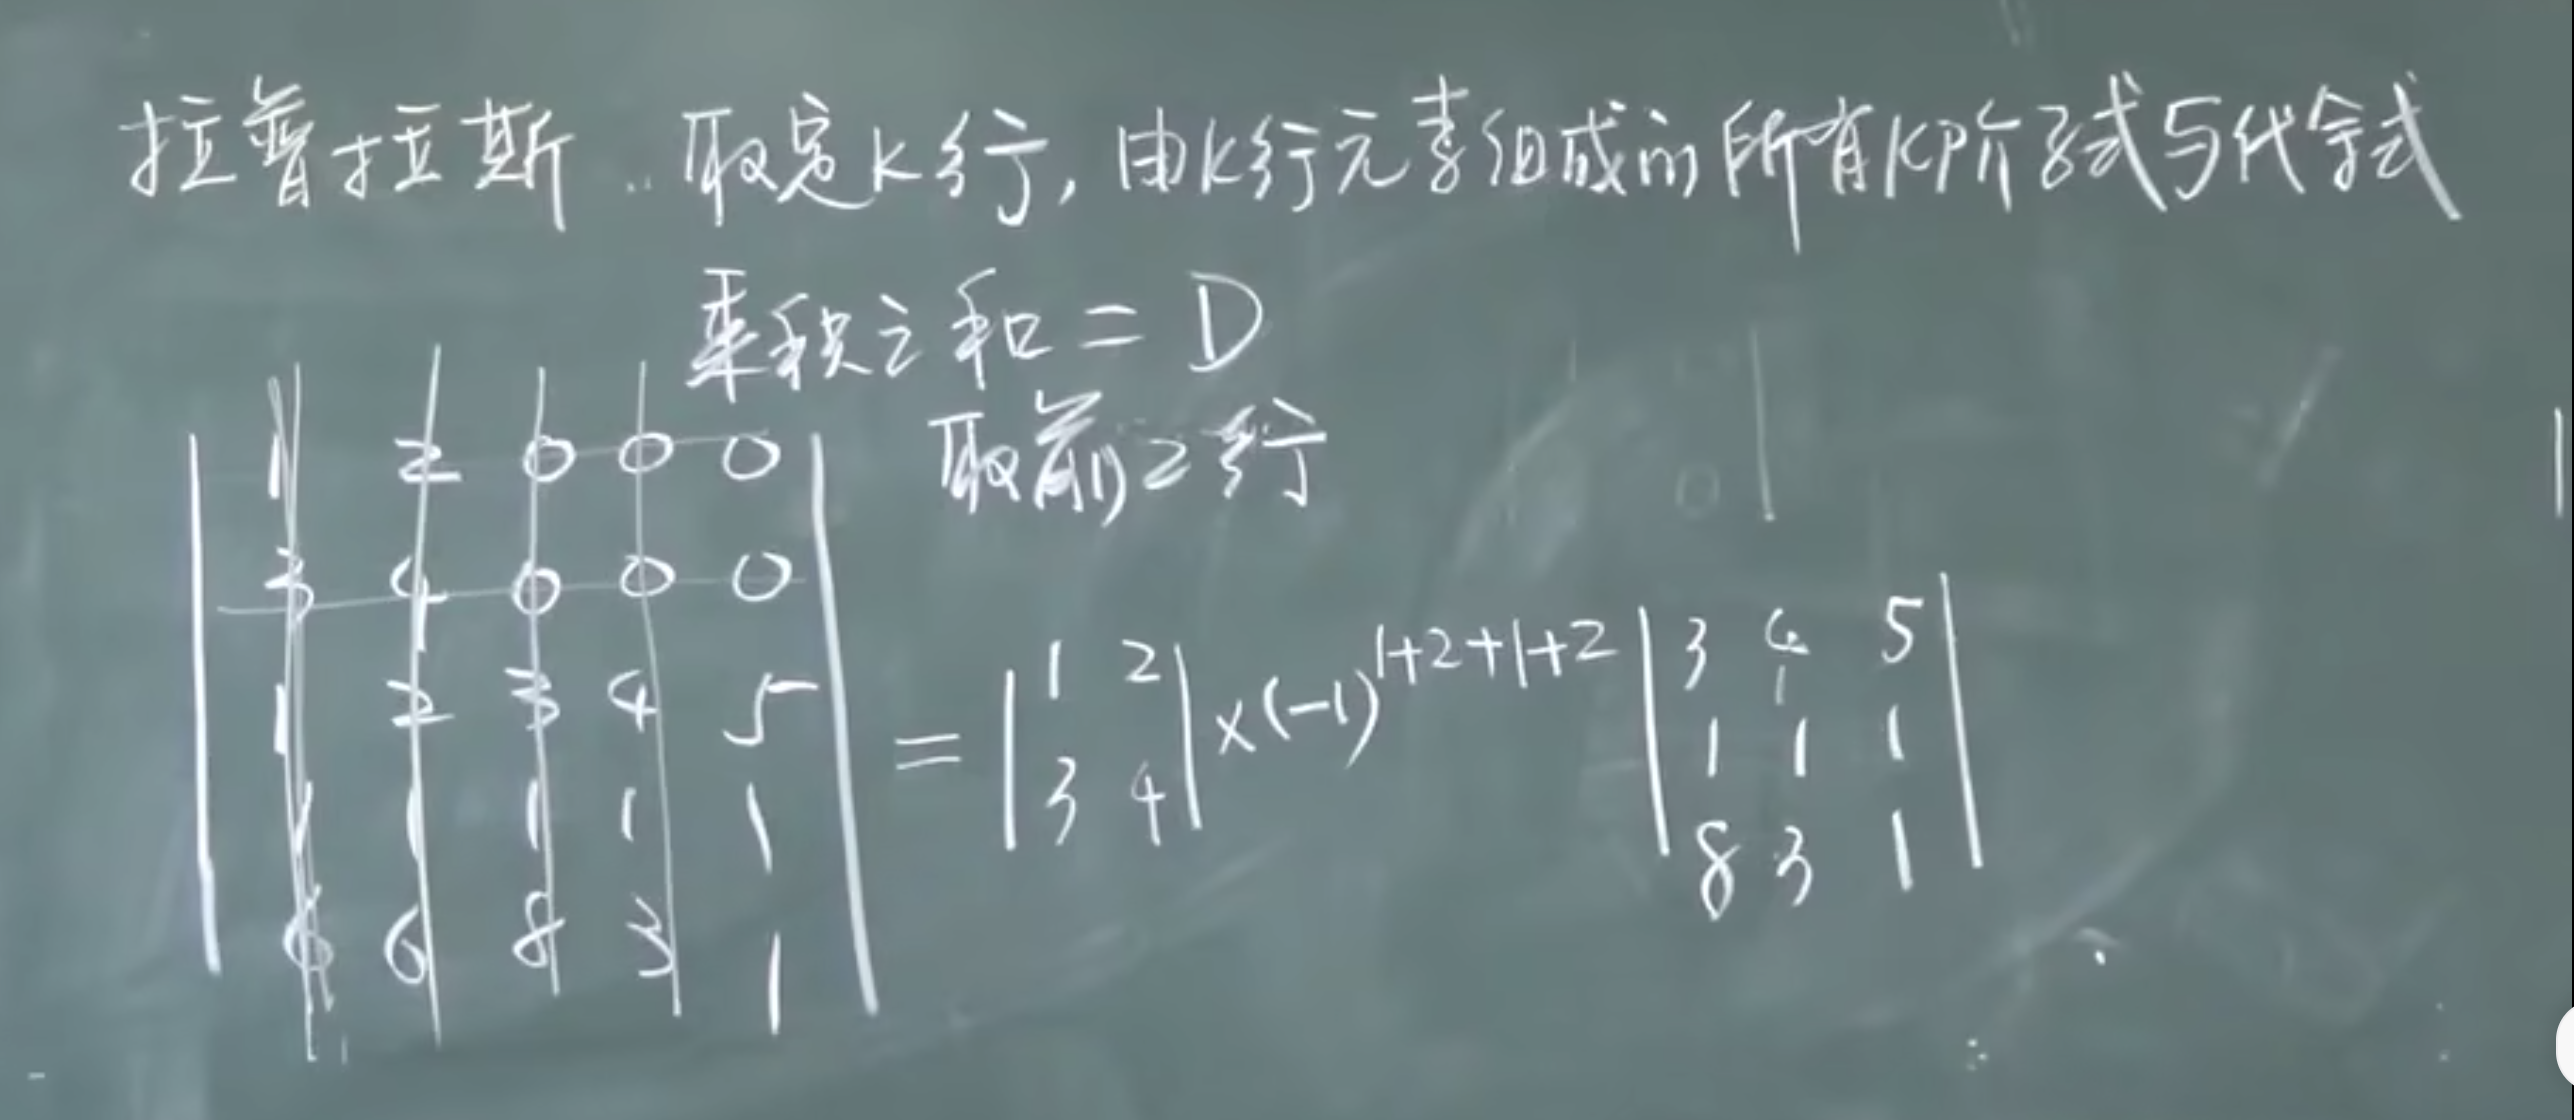 拉普拉斯:取定K行,由K行元素组成的所有K阶子式与代余式
乘积之和=D
取前2行
1 2 0 0 0
3 4 0 0 0
1 2 3 4 5
1 1 1 1 1
6 6 8 3 1
= |1 2| ×(-1)^{1+2+1+2} |3 4 5|
|3 4| |1 1 1|
|8 3 1|